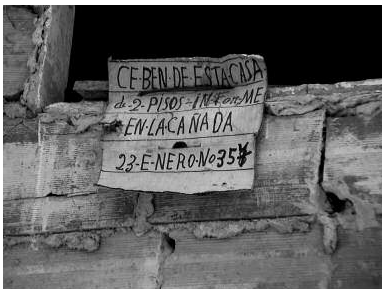 CE·BEN·DE·ESTACASA
de·2·PISOS·INForME
EN·LACAÑADA
23·E·NERO·No35